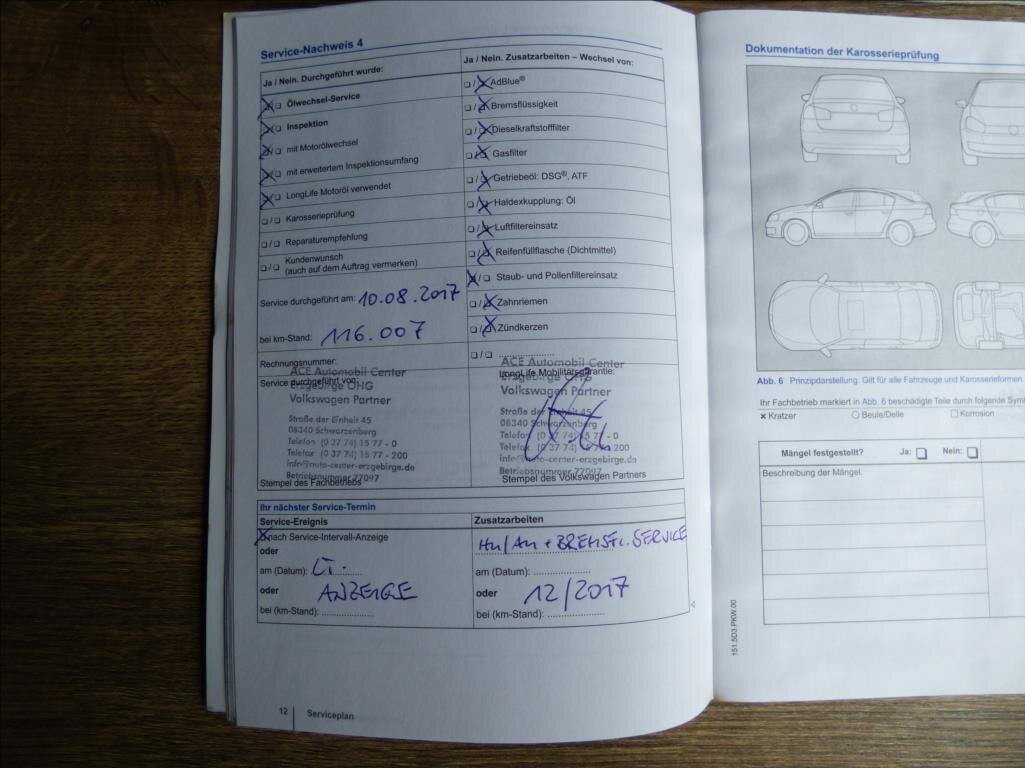 Service-Nachweis 4
Ja / Nein. Durchgeführt wurde:
Ölwechsel-Service
Inspektion
mit Motorölwechsel
mit erweitertem Inspektionsumfang
LongLife Motoröl verwendet
Karosserieprüfung
Reparaturempfehlung
Kundenwunsch
(auch auf dem Auftrag vermerken)
Service durchgeführt am: 10.08.2017
bei km-Stand: 116.007
Rechnungsnummer:
Service durchgeführt von:
ACE Automobil Center
Erzgebirge OHG
Volkswagen Partner
Straße der Einheit 45
08340 Schwarzenberg
Telefon (0 37 74) 15 77 - 0
Telefax (0 37 74) 15 77 - 200
info@auto-center-erzgebirge.de
Betriebsnummer 77097
Stempel des Fachbetriebs
Ja / Nein. Zusatzarbeiten – Wechsel von:
AdBlue®
Bremsflüssigkeit
Dieselkraftstofffilter
Gasfilter
Getriebeöl: DSG®, ATF
Haldexkupplung: Öl
Luftfiltereinsatz
Reifenfüllflasche (Dichtmittel)
Staub- und Pollenfiltereinsatz
Zahnriemen
Zündkerzen
LongLife Mobilitätsgarantie:
ACE Automobil Center
Erzgebirge OHG
Volkswagen Partner
Straße der Einheit 45
08340 Schwarzenberg
Telefon (0 37 74) 15 77 - 0
Telefax (0 37 74) 15 77 - 200
info@auto-center-erzgebirge.de
Betriebsnummer 77097
Stempel des Volkswagen Partners
Ihr nächster Service-Termin
Service-Ereignis
nach Service-Intervall-Anzeige
oder
am (Datum): LT.
oder ANZEIGE
bei (km-Stand):
Zusatzarbeiten
HU/AU + BREMSFL. SERVICE
am (Datum):
oder 12/2017
bei (km-Stand):
12 Serviceplan
Dokumentation der Karosserieprüfung
Abb. 6 Prinzipdarstellung: Gilt für alle Fahrzeuge und Karosserieformen
Ihr Fachbetrieb markiert in Abb. 6 beschädigte Teile durch folgende
Kratzer Beule/Delle Korrosion
Mängel festgestellt? Ja: Nein:
Beschreibung der Mängel:
151.5D3.PKW.00